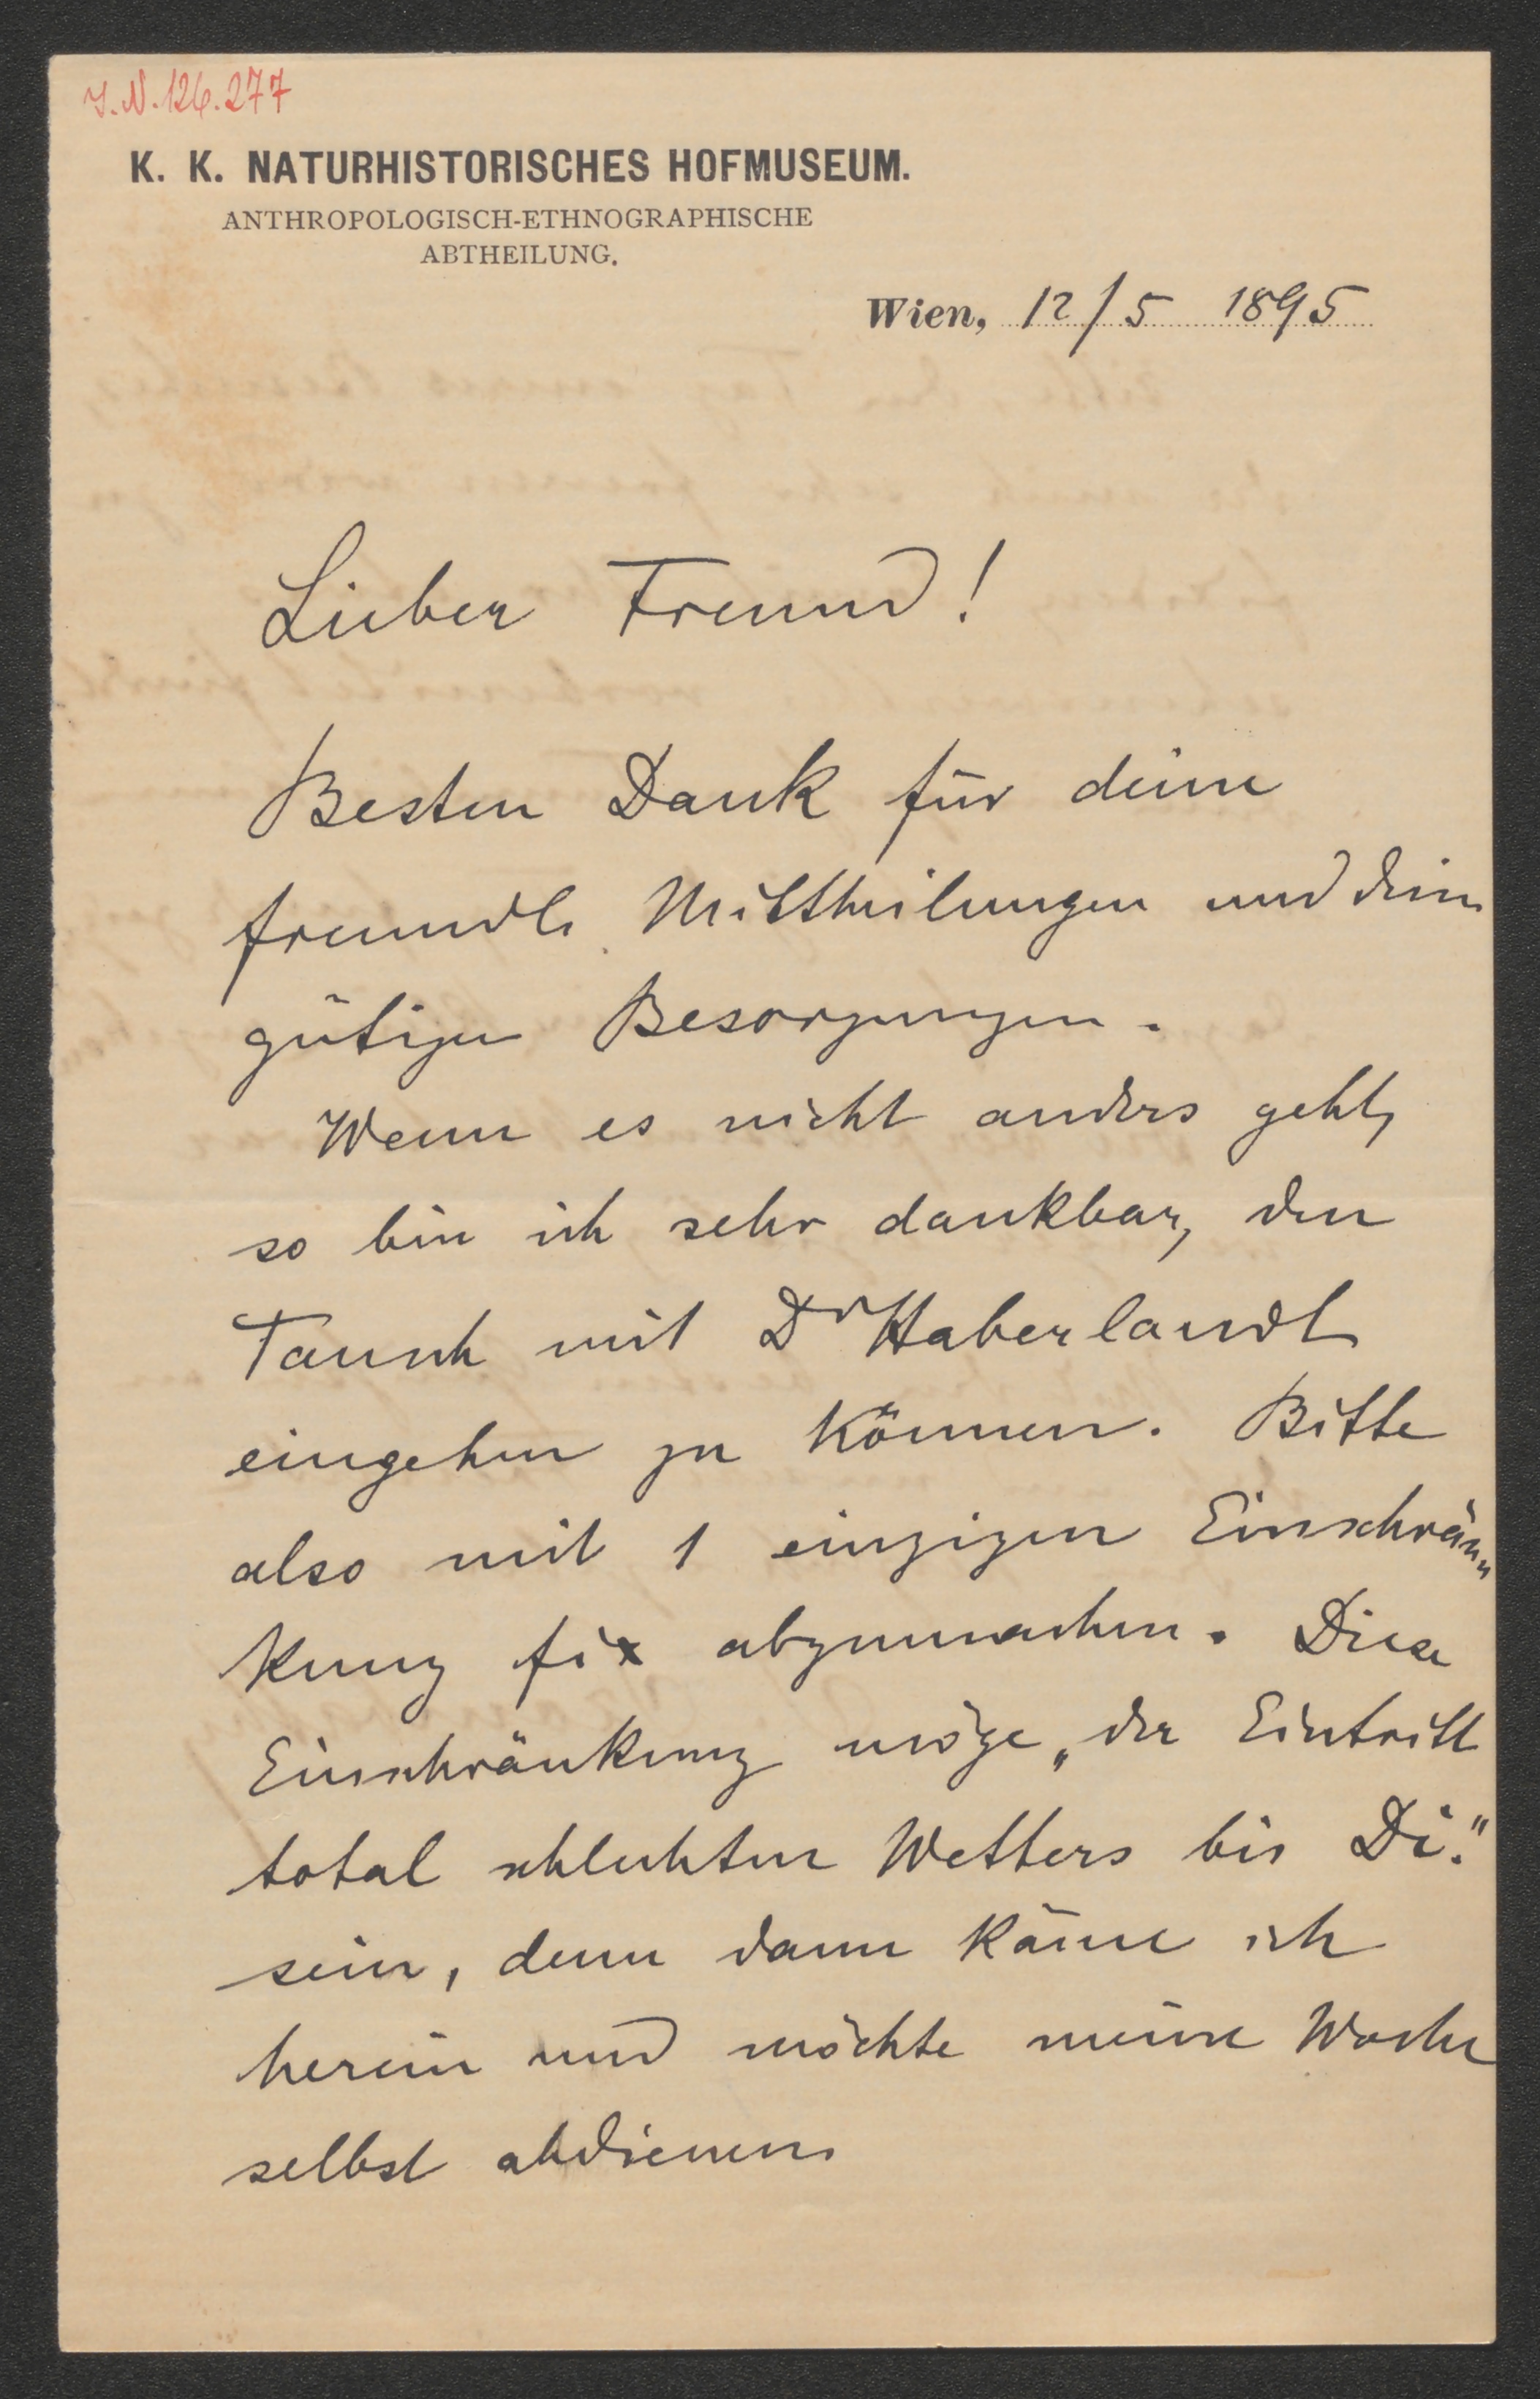 I.N. 126.277
K. K. NATURHISTORISCHES HOFMUSEUM.
ANTHROPOLOGISCH-ETHNOGRAPHISCHE
ABTHEILUNG.
Wien, 12/5 1895
Lieber Freund!
Besten Dank für deine
freundl. Mittheilungen und deine
gütigen Besorgungen.
Wenn es nicht anders geht,
so bin ich sehr dankbar, den
Tausch mit Dr Haberlandt
eingehen zu können. Bitte
also mit 1 einzigen Einschrän„
kung fix abzumachen. Diese
Einschränkung möge „der Eintritt
total schlechten Wetters bis Di."
sein, denn dann käme ich
herein und möchte meine Woche
selbst abdienen.